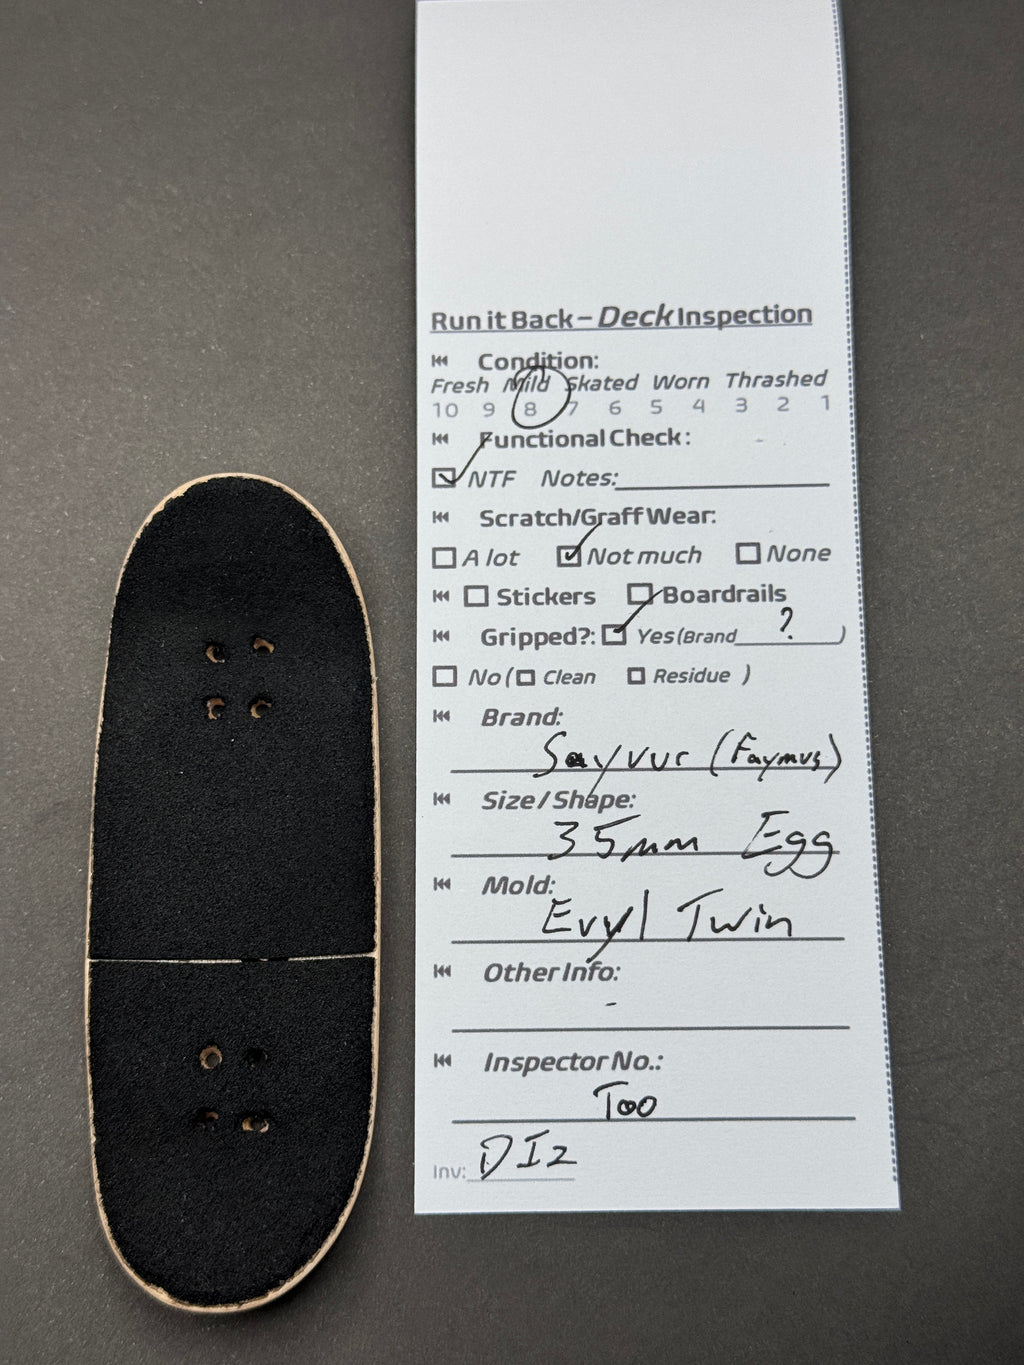 Run it Back – Deck Inspection
Condition:
Fresh Mild Skated Worn Thrashed
10 9 8 7 6 5 4 3 2 1
Functional Check:
NTF Notes:
Scratch/Graff Wear:
A lot Not much None
Stickers Boardrails
Gripped?: Yes (Brand ? )
No ( Clean Residue )
Brand:
Sayvur (Faymus)
Size / Shape:
35mm Egg
Mold:
Evyl Twin
Other Info:
-
Inspector No.:
Too
Inv: DI2